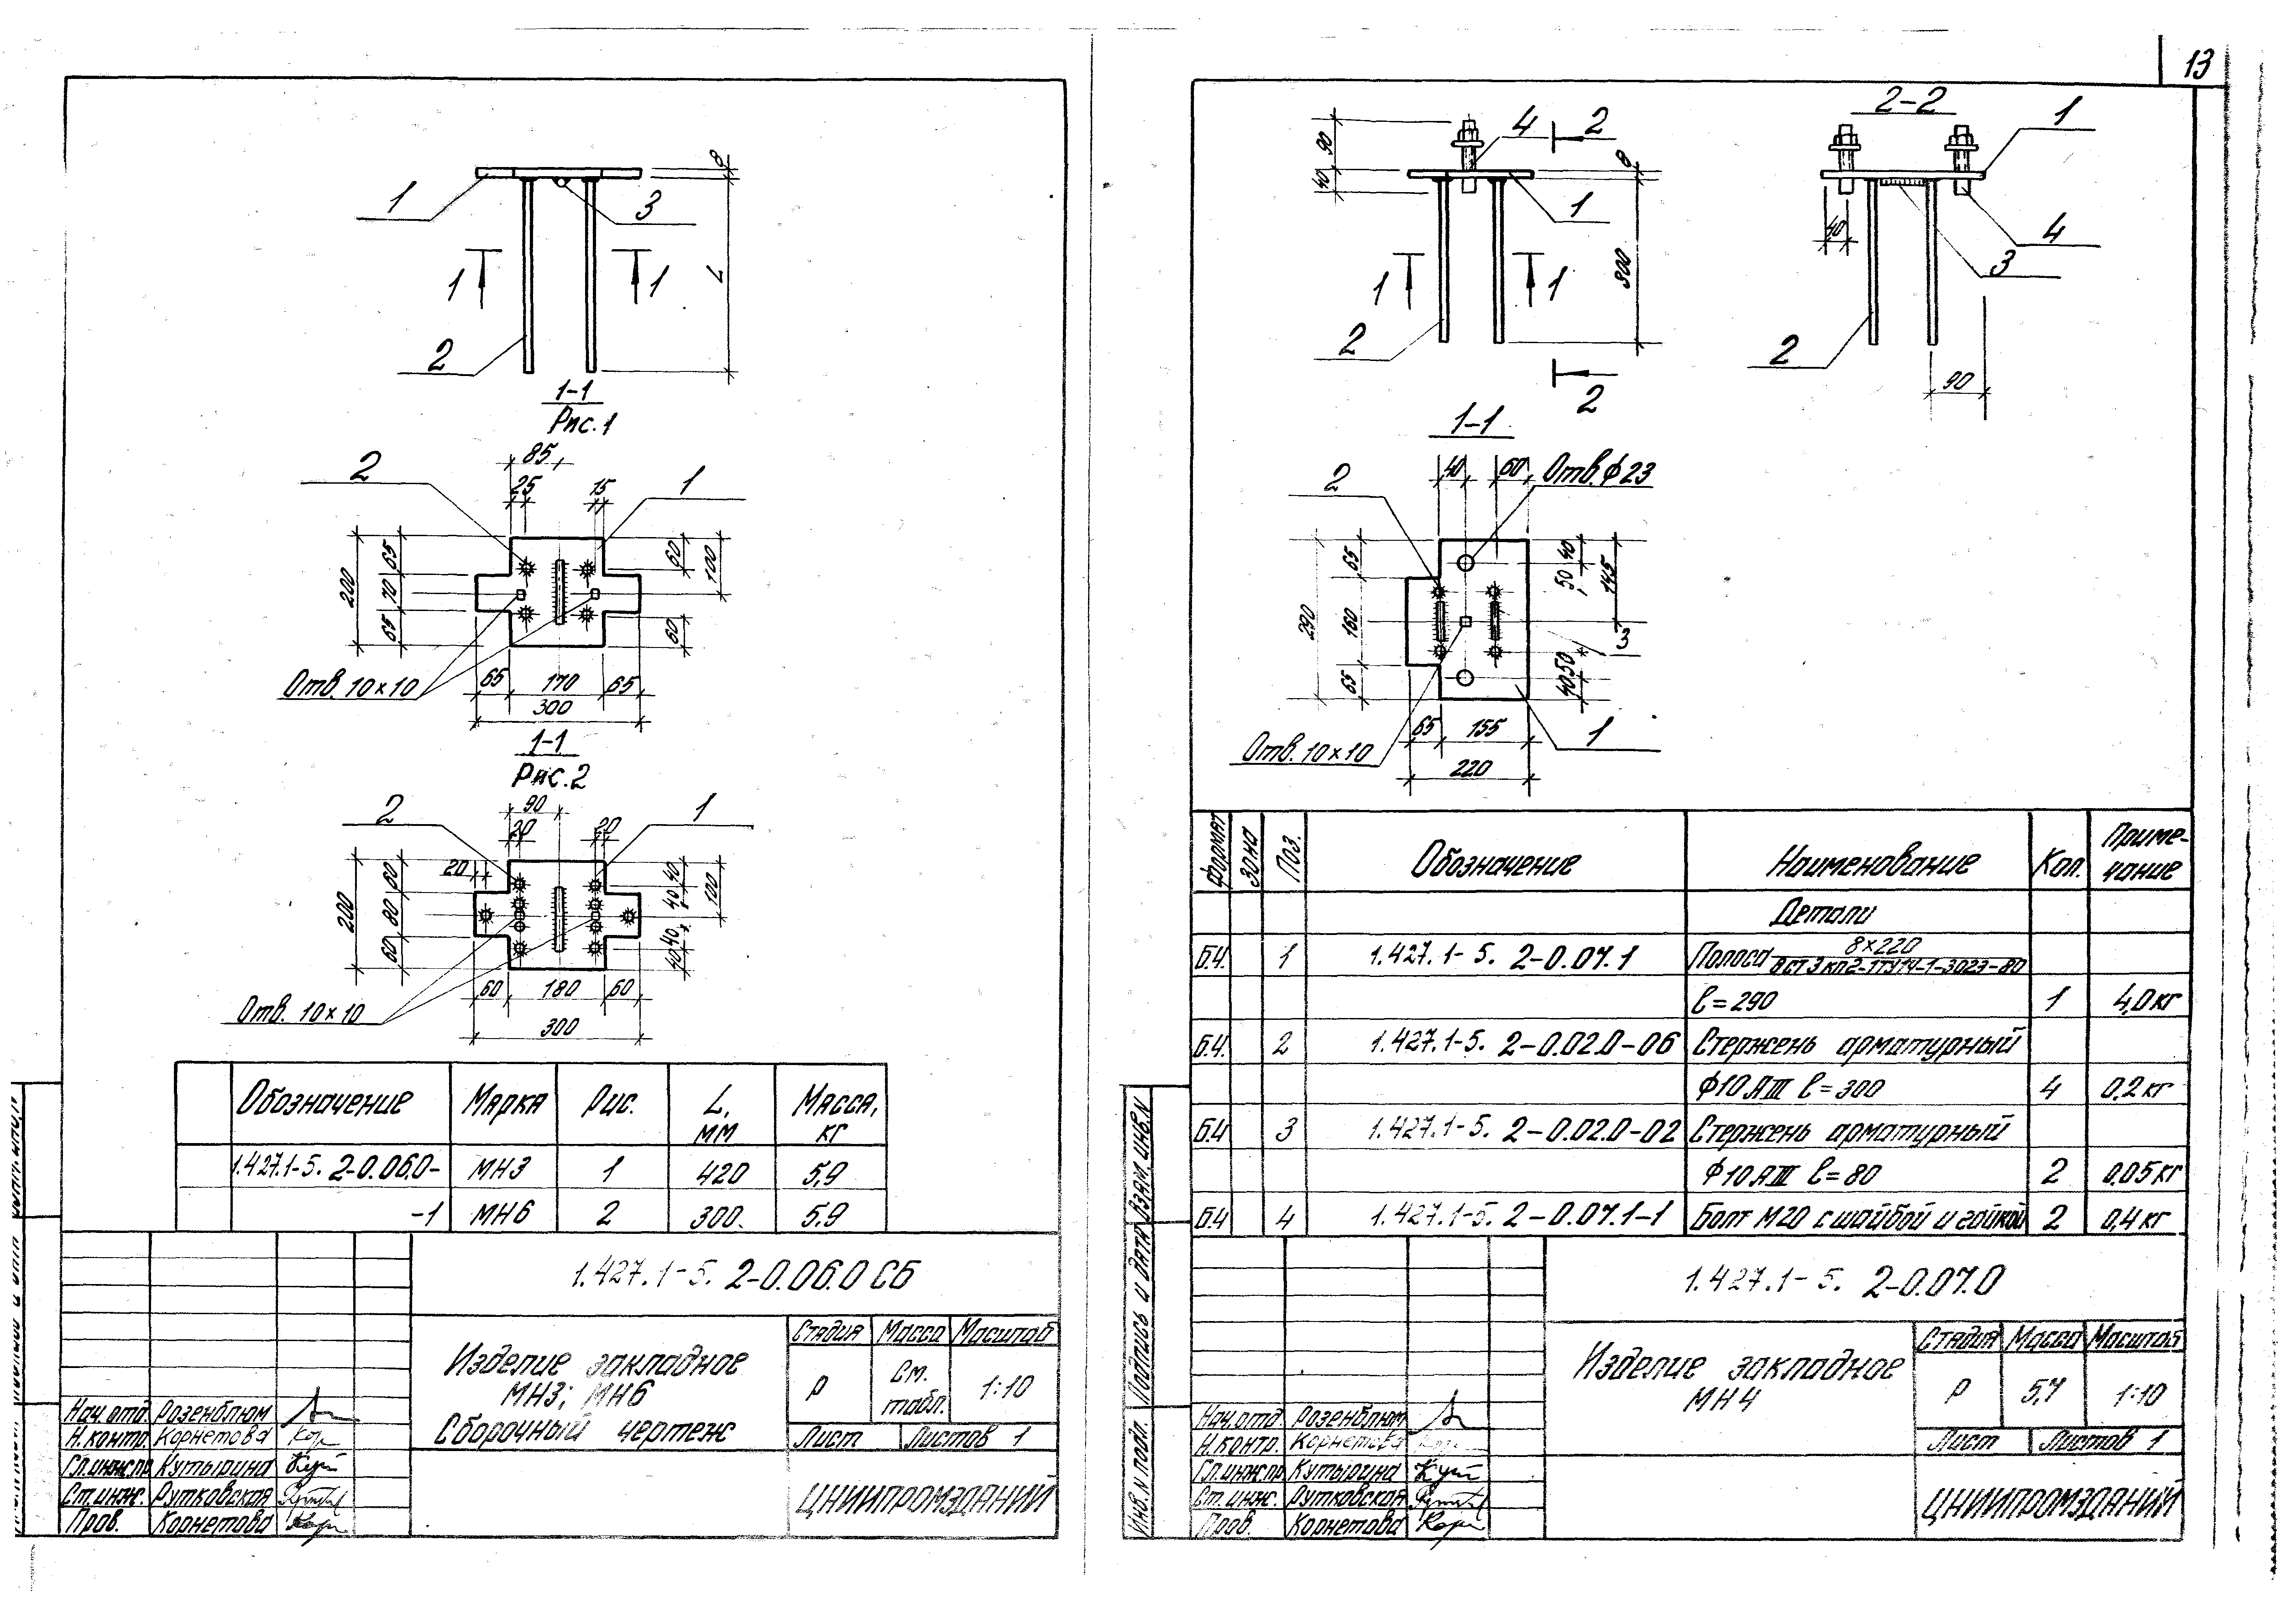 13
8
1
3
L
1
1
2
1-1
Рис.1
85
2
25
15
1
65
60
100
200
70
65
60
Отв. 10×10
65
170
65
300
1-1
Рис.2
90
2
20
20
1
20
60
40
40
100
200
80
60
40
40
60
180
60
Отв. 10×10
300
Обозначение Марка Рис. L, мм Масса, кг
1.427.1-5. 2-0.06.0- МН3 1 420 5,9
-1 МН6 2 300 5.9
1.427.1-5. 2-0.06.0 СБ
Изделие закладное
МН3; МН6
Сборочный чертеж
Стадия Масса Масштаб
Р См. табл. 1:10
Лист Листов 1
ЦНИИПРОМЗДАНИЙ
Нач.отд. Розенблюм
Н.контр. Корнетова
Гл.инж.пр. Кутырина
Ст.инж. Рутковская
Пров. Корнетова
90
40
4
2
8
1
1
1
300
2
2
2-2
1
40
4
3
2
90
1-1
40
60
Отв.ф23
2
65
40
50
145
290
160
3
50
40
65
65
155
1
Отв. 10×10
220
Формат Зона Поз. Обозначение Наименование Кол. Приме-чание
Детали
Б.4. 1 1.427.1-5. 2-0.07.1 Полоса 8×220 / ВСТ3кп2-1ТУ14-1-3023-80
ℓ=290 1 4,0кг
Б.4. 2 1.427.1-5. 2-0.02.0-06 Стержень арматурный
Ф10АIII ℓ=300 4 0.2кг
Б.4 3 1.427.1-5. 2-0.02.0-02 Стержень арматурный
Ф10АIII ℓ=80 2 0.05кг
Б.4 4 1.427.1-5. 2-0.07.1-1 Болт М20 с шайбой и гайкой 2 0,4кг
1.427.1-5. 2-0.07.0
Изделие закладное
МН4
Стадия Масса Масштаб
Р 5,7 1:10
Лист Листов 1
ЦНИИПРОМЗДАНИЙ
Нач.отд. Розенблюм
Н.контр. Корнетова
Гл.инж.пр. Кутырина
Ст.инж. Рутковская
Пров. Корнетова
Инв.N подл. Подпись и дата Взам.инв.N